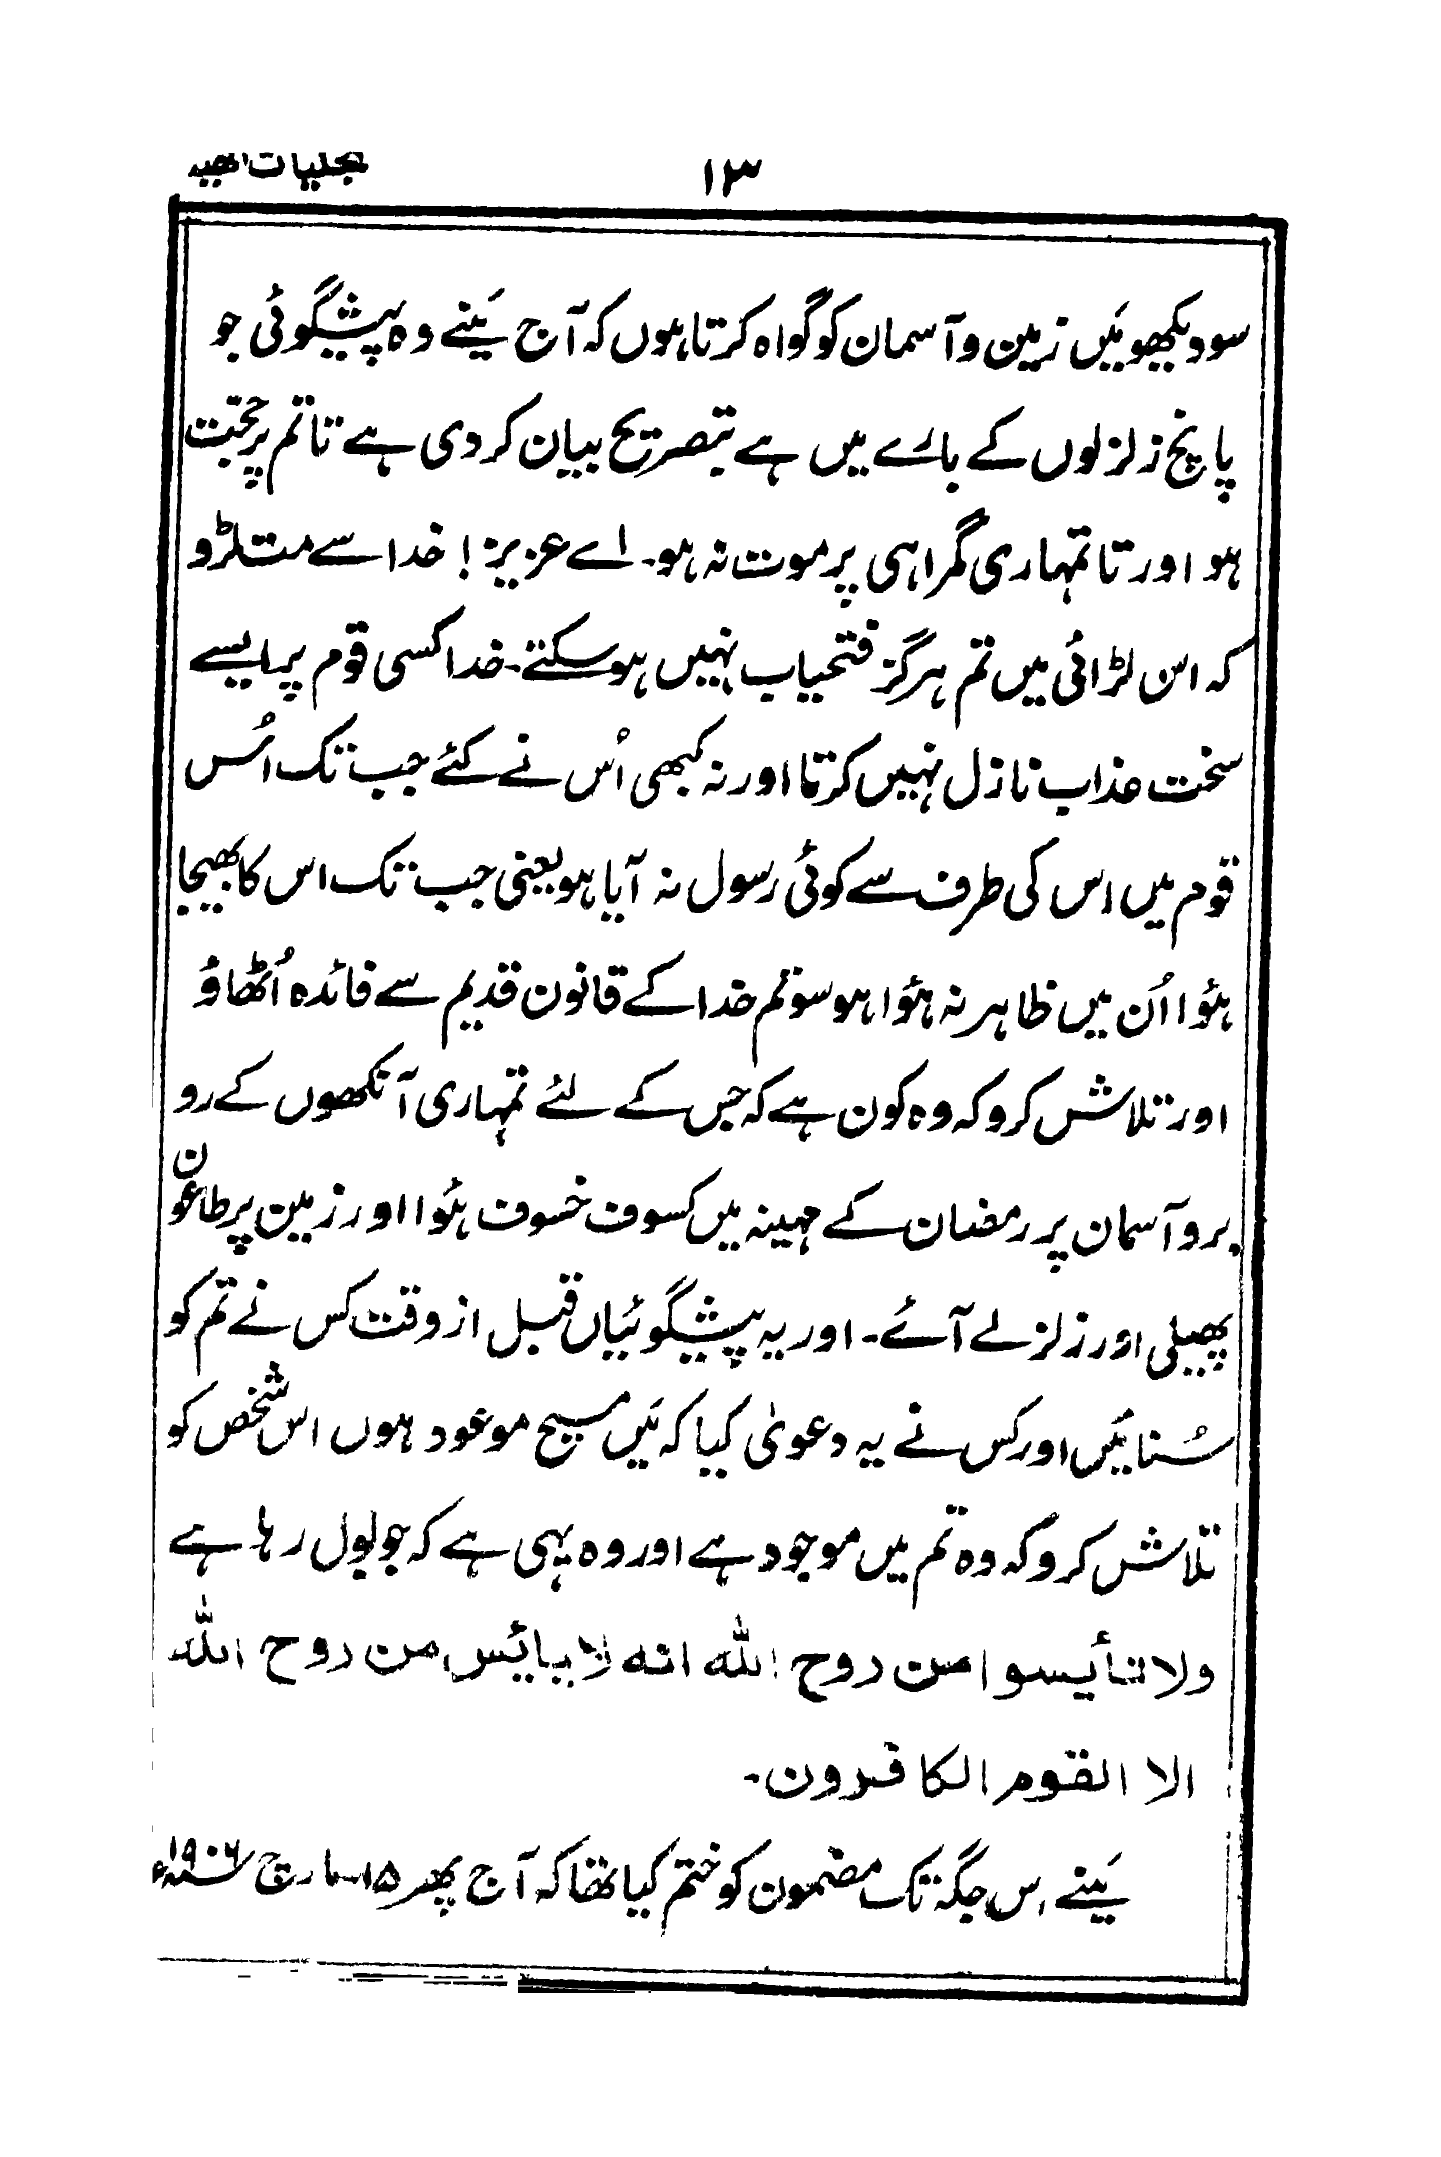 تجلیات الٰہیہ
۱۳
سو دیکھو مَیں زمین و آسمان کو گواہ کرتا ہوں کہ آج مَیننے وہ پیشگوئی جو
پانچ زلزلوں کے بارے میں ہے بتصریح بیان کر دی ہے تا تم پر حجّت
ہو اور تا تمہاری گمراہی پر موت نہ ہو۔ اے عزیز! خدا سے مت لڑو
کہ اس لڑائی میں تم ہرگز فتحیاب نہیں ہو سکتے۔ خدا کسی قوم پر ایسے
سخت عذاب نازل نہیں کرتا اور نہ کبھی اُس نے کئے جب تک اُس
قوم میں اس کی طرف سے کوئی رسول نہ آیا ہو یعنی جب تک اس کا بھیجا
ہؤا اُن میں ظاہر نہ ہؤا ہو سو تم خدا کے قانون قدیم سے فائدہ اُٹھاؤ
اور تلاش کرو کہ وہ کون ہے کہ جس کے لئے تمہاری آنکھوں کے رو
برو آسمان پر رمضان کے مہینہ میں کسوف خسوف ہؤا اور زمین پر طاعون
پھیلی اور زلزلے آئے۔ اور یہ پیشگوئیاں قبل از وقت کس نے تم کو
سُنائیں اور کس نے یہ دعویٰ کیا کہ مَیں مسیح موعود ہوں اس شخص کو
تلاش کرو کہ وہ تم میں موجود ہے اور وہ یہی ہے کہ جو بول رہا ہے
ولا تأیسوا من روح اللّٰہ انہ لا یایئس من روح اللّٰہ
الا القوم الکافرون۔
مَیننے اس جگہ تک مضمون کو ختم کیا تھا کہ آج پھر ۱۵۔مارچ سنہ ۱۹۰۶ء